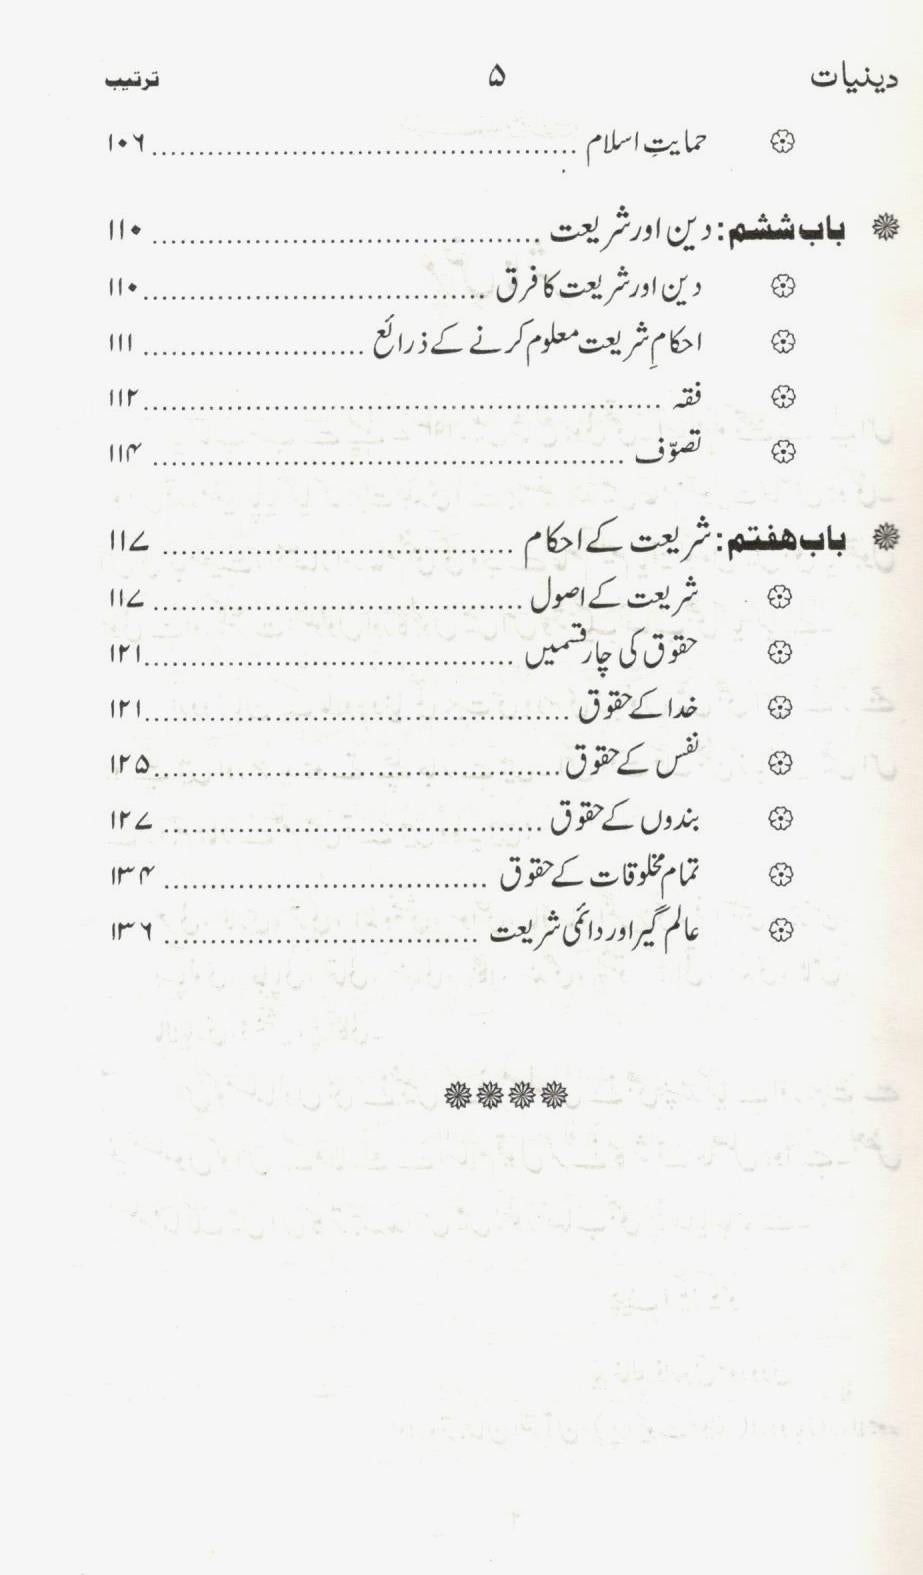 دینیات ۵ ترتیب
حمایتِ اسلام ........................................ ۱۰۶
باب ششم: دین اور شریعت ........................................ ۱۱۰
دین اور شریعت کا فرق ........................................ ۱۱۰
احکامِ شریعت معلوم کرنے کے ذرائع ........................................ ۱۱۱
فقہ ........................................ ۱۱۲
تصوّف ........................................ ۱۱۴
باب ہفتم: شریعت کے احکام ........................................ ۱۱۷
شریعت کے اصول ........................................ ۱۱۷
حقوق کی چار قسمیں ........................................ ۱۲۱
خدا کے حقوق ........................................ ۱۲۱
نفس کے حقوق ........................................ ۱۲۵
بندوں کے حقوق ........................................ ۱۲۷
تمام مخلوقات کے حقوق ........................................ ۱۳۴
عالم گیر اور دائمی شریعت ........................................ ۱۳۶